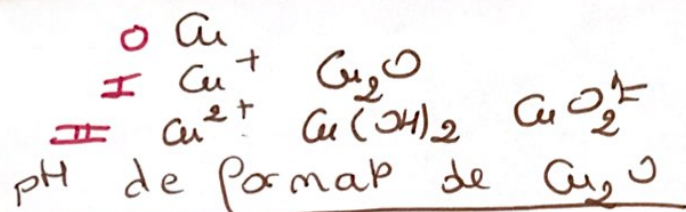 0 Cu
I Cu⁺ Cu₂O
II Cu²⁺ Cu(OH)₂ CuO₂²⁻
pH de format de Cu₂O